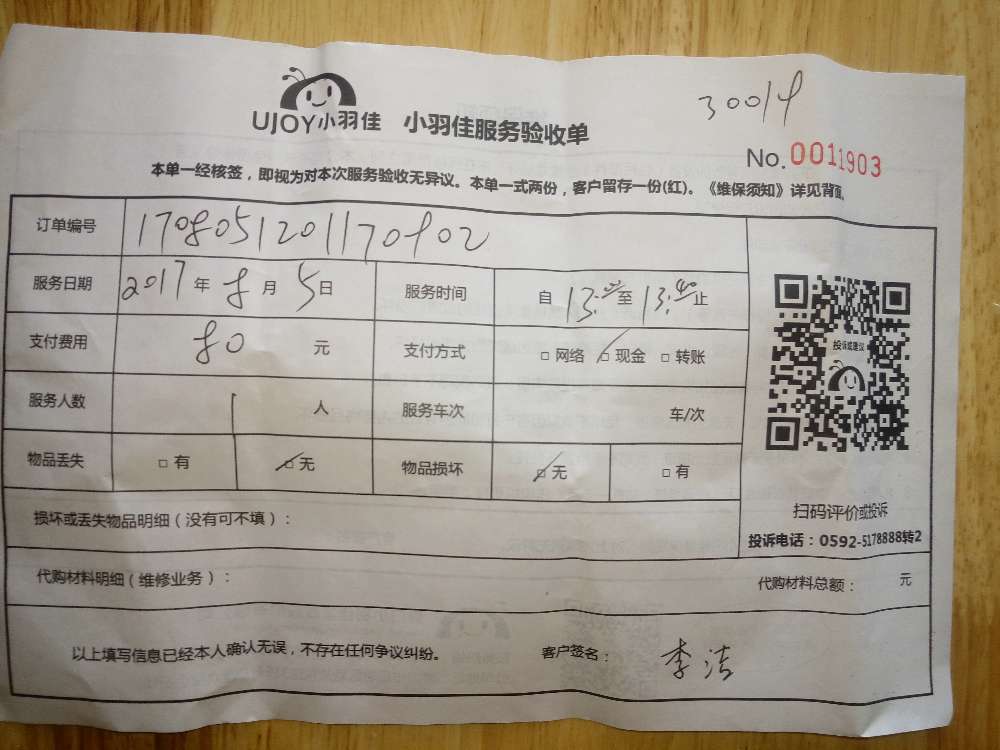 30014
UJOY小羽佳 小羽佳服务验收单
No. 0011903
本单一经核签，即视为对本次服务验收无异议。本单一式两份，客户留存一份(红)。《维保须知》详见背面。
订单编号 1708051201170802
服务日期 2017年8月5日 服务时间 自13:00至13:40止
支付费用 80 元 支付方式 □网络 □现金 □转账
服务人数 1 人 服务车次 车/次
物品丢失 □有 □无 物品损坏 □无 □有
投诉或建议
扫码评价或投诉
投诉电话：0592-5178888转2
损坏或丢失物品明细（没有可不填）：
代购材料明细（维修业务）： 代购材料总额： 元
以上填写信息已经本人确认无误，不存在任何争议纠纷。 客户签名： 李洁